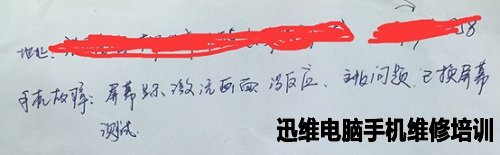 地址:
38
手机故障：屏幕显示激活画面 没反应、主板问题、已换屏幕
测试.
迅维电脑手机维修培训